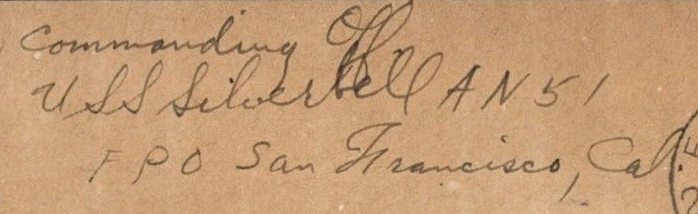 Commanding Off.
USS Silverbell AN 51
FPO San Francisco, Cal.